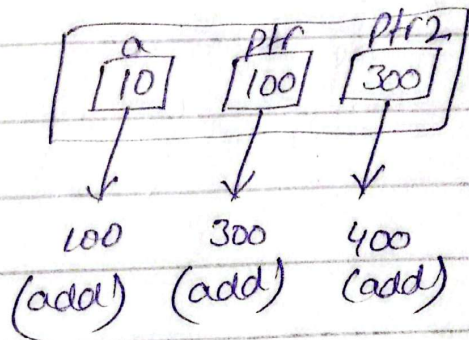 a ptr ptr2
10 100 300
100 300 400
(add) (add) (add)